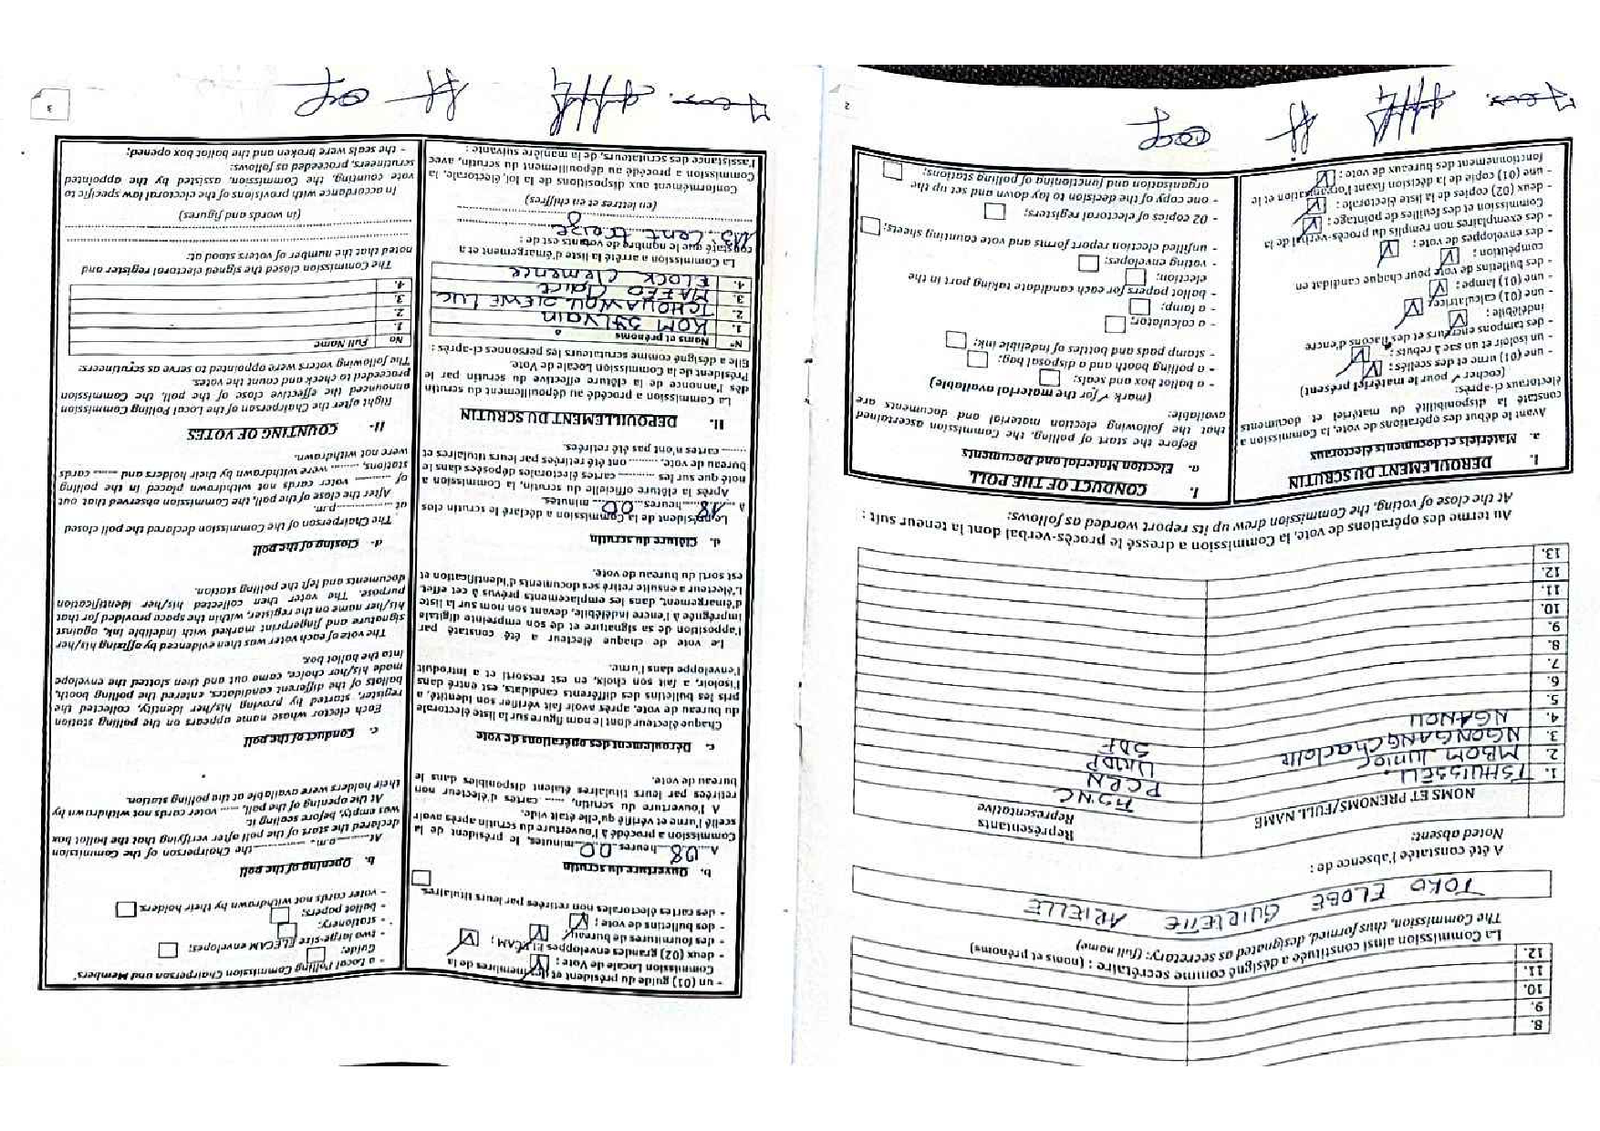 8.
9.
10.
11.
12.
La Commission ainsi constituée a désigné comme secrétaire : (noms et prénoms)
The Commission, thus formed, designated as secretary: (full name)
TOKO ELOBE GUIRLETTE ARIELLE
A été constatée l'absence de :
Noted absent:
NOMS ET PRENOMS/FULL NAME
Représentants
Representative
1. TSHUISSEU.
PCRN
2. MBOM Junior
UNDP
3. NGONGANG Charlotte
SDF
4. NGANOU
5.
6.
7.
8.
9.
10.
11.
12.
13.
Au terme des opérations de vote, la Commission a dressé le procès-verbal dont la teneur suit :
At the close of voting, the Commission drew up its report worded as follows:
I. DEROULEMENT DU SCRUTIN
a. Matériels et documents électoraux
Avant le début des opérations de vote, la Commission a
constaté la disponibilité du matériel et documents
électoraux ci-après:
(cocher ✓ pour le matériel présent)
- une (01) urne et des scellés :
- un isoloir et un sac à rebuts :
- des tampons encreurs et des flacons d'encre
indélébile :
- une (01) calculatrice :
- une (01) lampe :
- des bulletins de vote pour chaque candidat en
compétition :
- des enveloppes de vote :
- des exemplaires non remplis du procès-verbal de la
Commission et des feuilles de pointage :
- deux (02) copies de la liste électorale :
- une (01) copie de la décision fixant l'organisation et le
fonctionnement des bureaux de vote :
I. CONDUCT OF THE POLL
a. Election Material and Documents
Before the start of polling, the Commission ascertained
that the following election material and documents are
available:
(mark ✓ for the material available)
- a ballot box and seals;
- a polling booth and a disposal bag;
- stamp pads and bottles of indelible ink;
- a calculator;
- a lamp;
- ballot papers for each candidate taking part in the
election;
- voting envelopes;
- unfilled election report forms and vote counting sheets;
- 02 copies of electoral registers;
- one copy of the decision to lay down and set up the
organisation and functioning of polling stations;
2
- un (01) guide du président et des membres de la
Commission Locale de Vote :
- deux (02) grandes enveloppes ELECAM :
- des fournitures de bureau :
- des bulletins de vote :
- des cartes électorales non retirées par leurs titulaires.
b. Ouverture du scrutin
A 08 heures 00 minutes, le président de la
Commission a procédé à l'ouverture du scrutin après avoir
scellé l'urne et vérifié qu'elle était vide.
A l'ouverture du scrutin, ...... cartes d'électeur non
retirées par leurs titulaires étaient disponibles dans le
bureau de vote.
c. Déroulement des opérations de vote
Chaque électeur dont le nom figure sur la liste électorale
du bureau de vote, après avoir fait vérifier son identité, a
pris les bulletins des différents candidats, est entré dans
l'isoloir, a fait son choix, en est ressorti et a introduit
l'enveloppe dans l'urne.
Le vote de chaque électeur a été constaté par
l'apposition de sa signature et de son empreinte digitale
imprégnée à l'encre indélébile, devant son nom sur la liste
d'émargement, dans les emplacements prévus à cet effet.
L'électeur a ensuite retiré ses documents d'identification et
est sorti du bureau de vote.
d. Clôture du scrutin
Le président de la Commission a déclaré le scrutin clos
à 18 heures 00 minutes.
Après la clôture officielle du scrutin, la Commission a
noté que sur les ........ cartes électorales déposées dans le
bureau de vote, ........ ont été retirées par leurs titulaires et
........ cartes n'ont pas été retirées.
II. DEPOUILLEMENT DU SCRUTIN
La Commission a procédé au dépouillement du scrutin
dès l'annonce de la clôture effective du scrutin par le
Président de la Commission Locale de Vote.
Elle a désigné comme scrutateurs les personnes ci-après :
N° Noms et prénoms
1. KOM Sylvain
2. TCHOUAWOU SIEWE LUC
3. MAFFO Claire
4. ELOCK Clemence
La Commission a arrêté la liste d'émargement et a
constaté que le nombre de votants est de :
113 Cent treize
(en lettres et en chiffres)
Conformément aux dispositions de la loi électorale, la
Commission a procédé au dépouillement du scrutin, avec
l'assistance des scrutateurs, de la manière suivante :
- a Local Polling Commission Chairperson and Members'
Guide;
- two large-size ELECAM envelopes;
- stationery;
- ballot papers;
- voter cards not withdrawn by their holders.
b. Opening of the poll
At ..........a.m. .............., the Chairperson of the Commission
declared the start of the poll after verifying that the ballot box
was empty, before sealing it.
At the opening of the poll, ...... voter cards not withdrawn by
their holders were available at the polling station.
c. Conduct of the poll
Each elector whose name appears on the polling station
register, started by proving his/her identity, collected the
ballots of the different candidates, entered the polling booth,
made his/her choice, came out and then slotted the envelope
into the ballot box.
The vote of each voter was then evidenced by affixing his/her
signature and fingerprint marked with indelible ink, against
his/her name on the register, within the space provided for that
purpose. The voter then collected his/her identification
documents and left the polling station.
d- Closing of the poll
The Chairperson of the Commission declared the poll closed
at ..............p.m.
After the close of the poll, the Commission observed that out
of ........ voter cards not withdrawn placed in the polling
stations, ........ were withdrawn by their holders and ...... cards
were not withdrawn.
II- COUNTING OF VOTES
Right after the Chairperson of the Local Polling Commission
announced the effective close of the poll, the Commission
proceeded to check and count the votes.
The following voters were appointed to serve as scrutineers:
No Full Name
1.
2.
3.
4.
The Commission closed the signed electoral register and
noted that the number of voters stood at:
(in words and figures)
In accordance with provisions of the electoral law specific to
vote counting, the Commission, assisted by the appointed
scrutineers, proceeded as follows:
- the seals were broken and the ballot box opened;
3